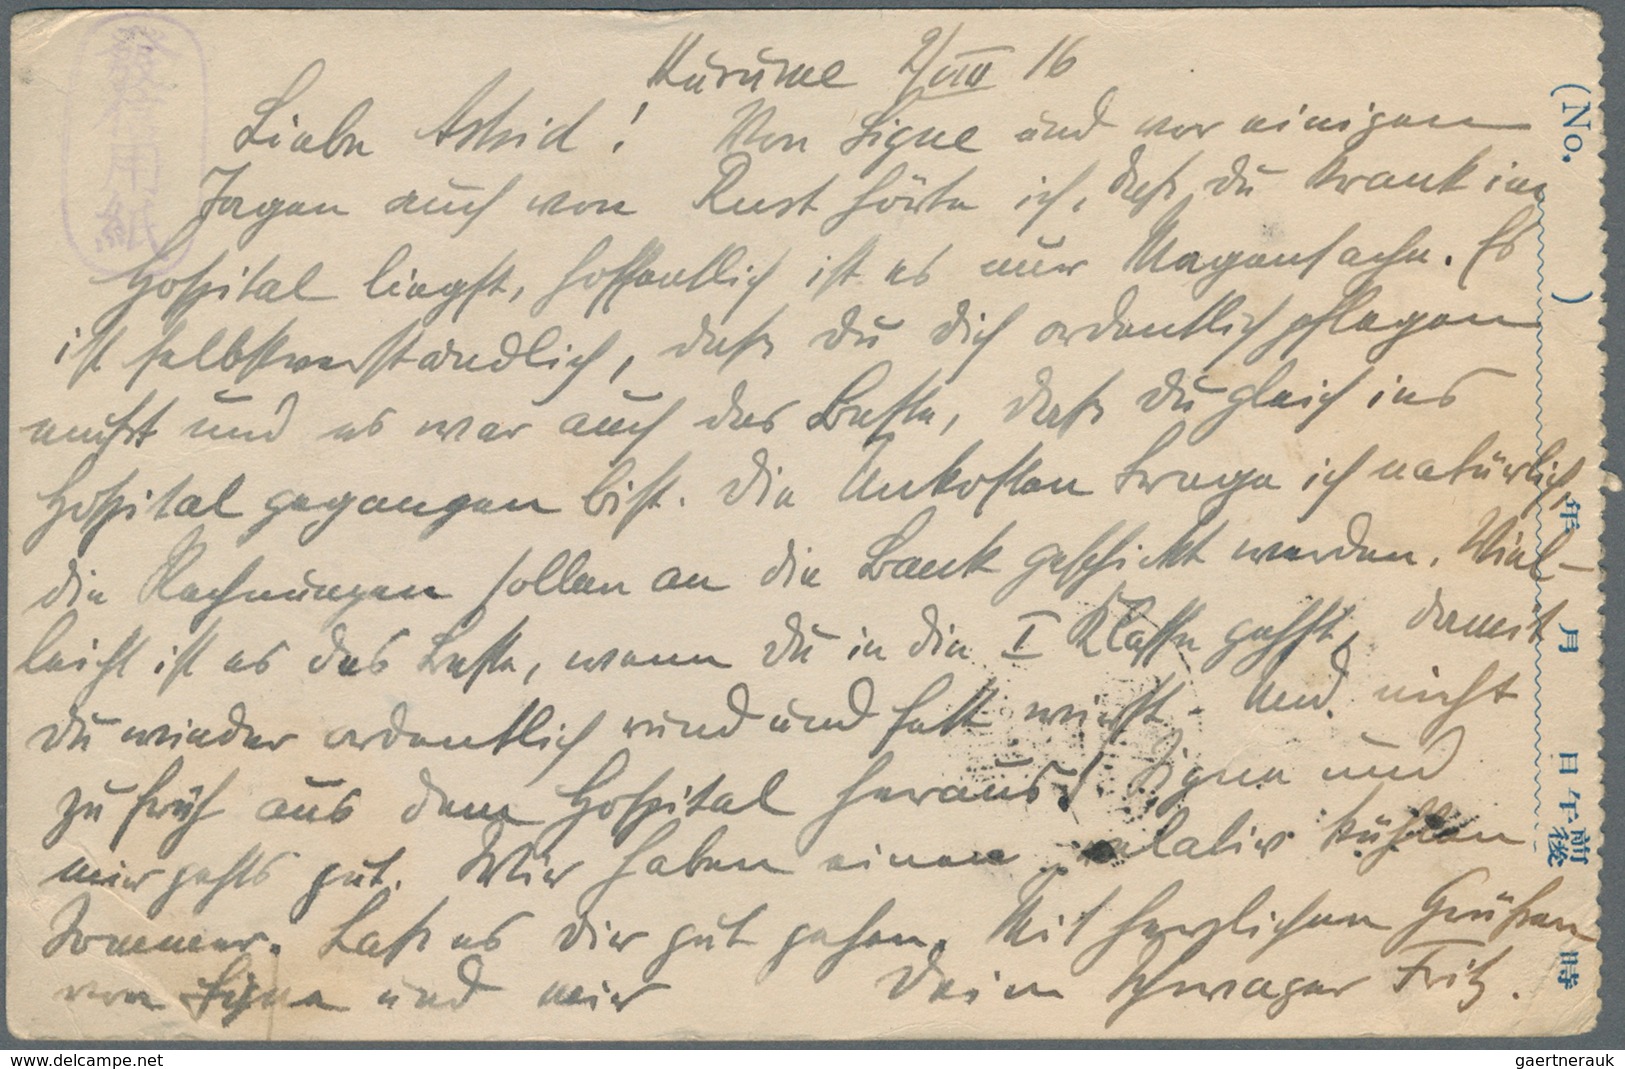 發信用紙
Kurume 2/VIII 16
Liebe Astrid! Von Signe und vor einigen
Tagen auch von Rust hörte ich, daß du krank im
Hospital liegst, hoffentlich ist es nur Magensache. Es
ist selbstverständlich, daß du dich ordentlich pflegen
mußt und es war auch das Beste, daß du gleich ins
Hospital gegangen bist. Die Unkosten trage ich natürlich,
die Rechnungen sollen an die Bank geschickt werden. Viel-
leicht ist es das Beste, wenn du in die I Klasse gehst, damit
du wieder ordentlich rund und fett wirst. Und nicht
zu früh aus dem Hospital heraus! Signe und
mir gehts gut. Wir haben einen relativ kühlen
Sommer. Laß es dir gut gehen. Mit herzlichen Grüßen
von Signe und mir Dein Schwager Fritz.
(No. )
年 月 日 午前後 時
www.delcampe.net
gaertnerauk